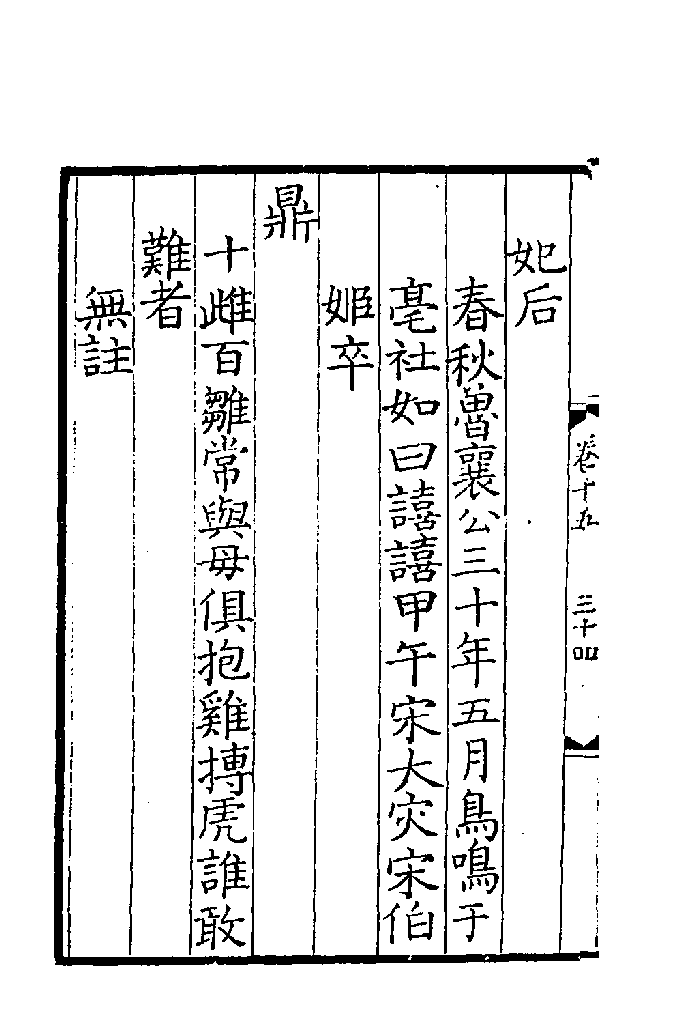 妃后
春秋魯襄公三十年五月鳥鳴于
亳社如曰譆譆甲午宋大灾宋伯
姬卒
鼎
十雌百雛常與母俱抱雞搏虎誰敢
難者
無註
卷十五
三十四